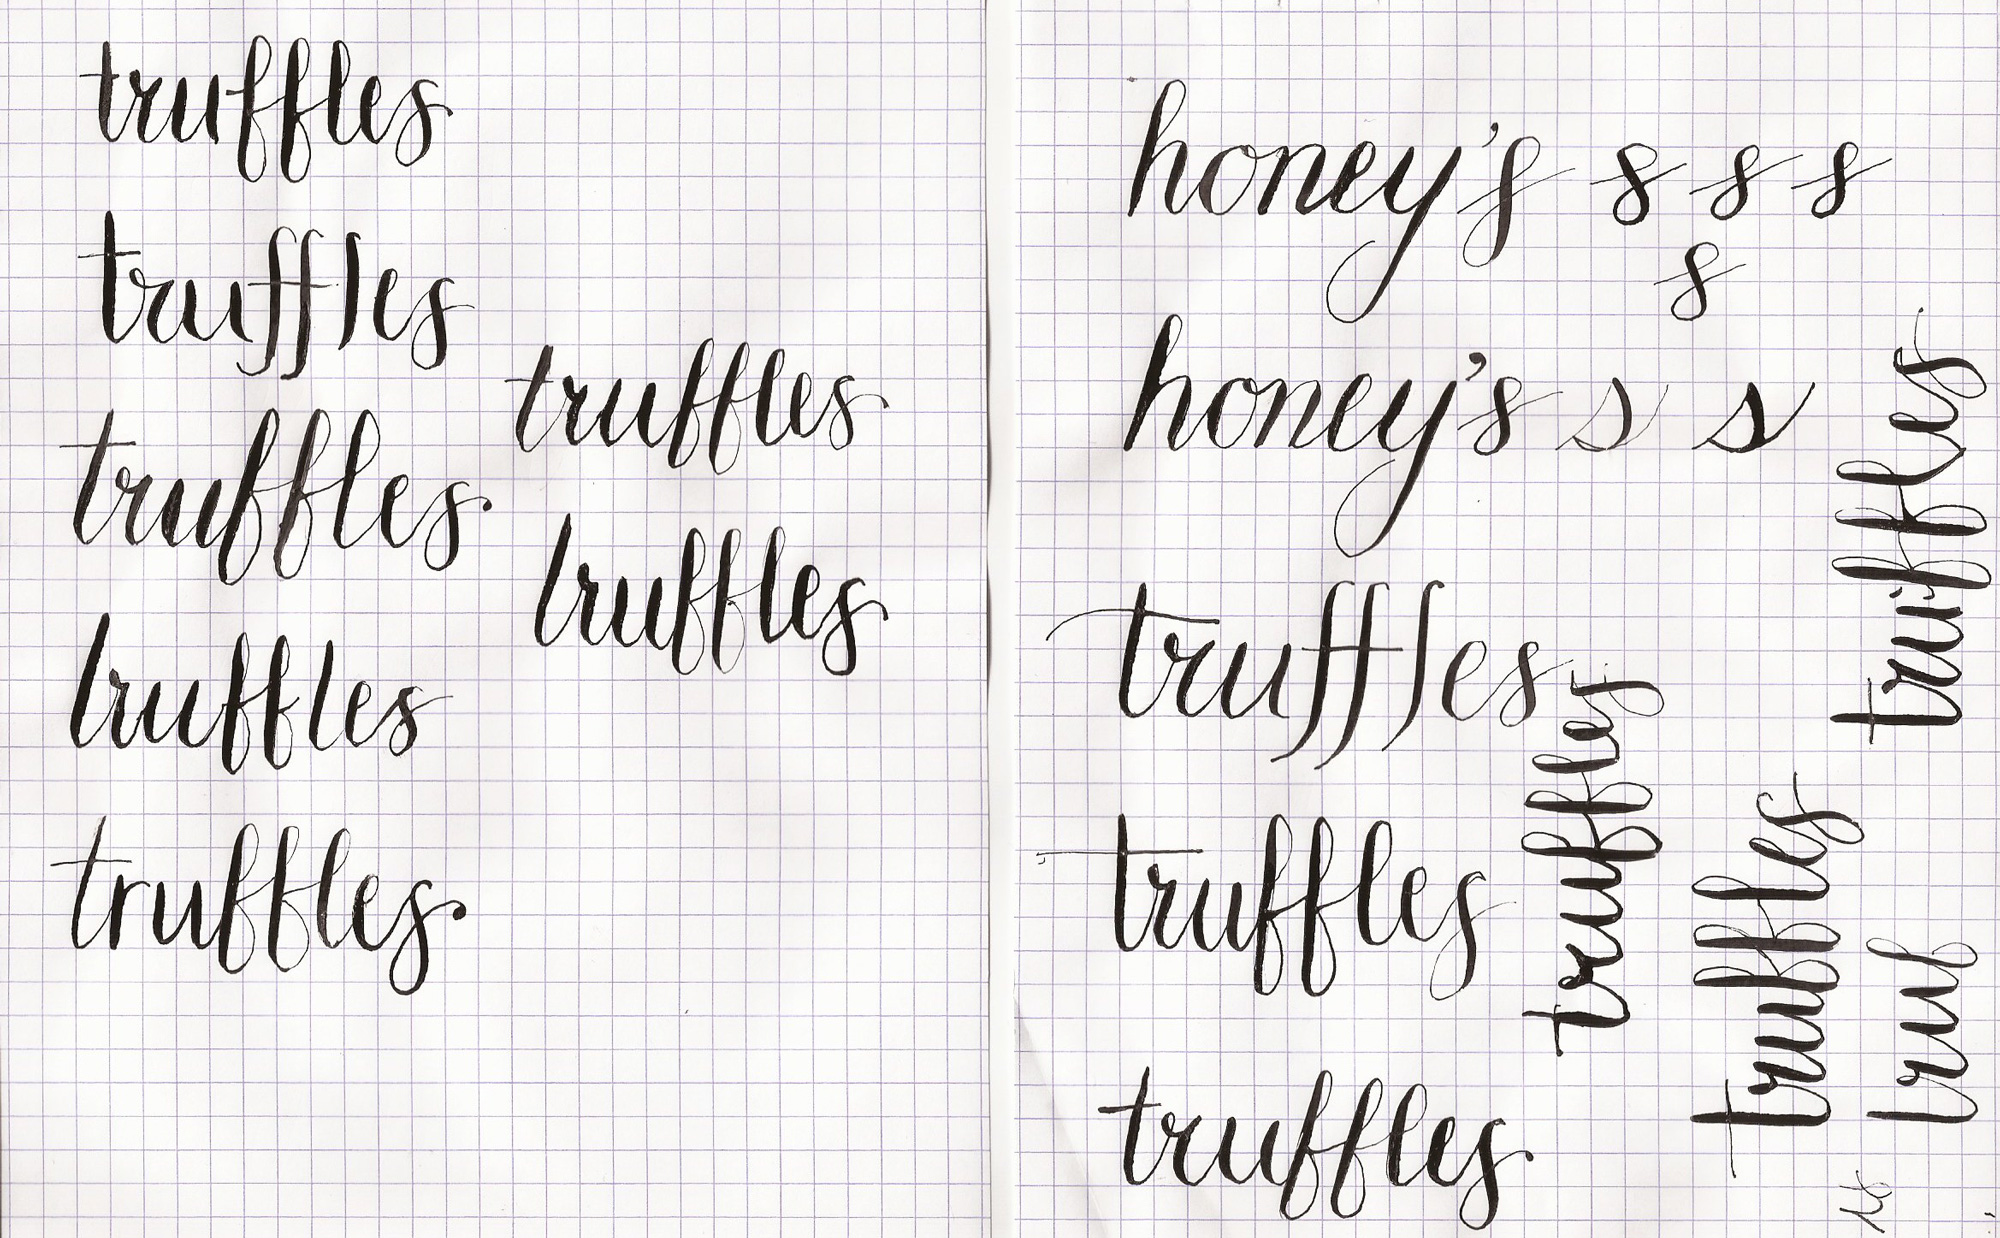 truffles
truffles
truffles
truffles
truffles
truffles
truffles
honey's s s s
s
honey's s s
truffles
truffles
truffles
truffles
truffles
truffles
truf